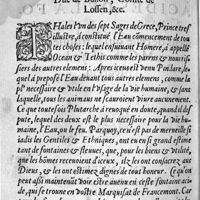 Duc de Buillon, Comte de
Lossen, &c.
THales l'vn des sept Sages de Grece, Prince tres-
illustre, à constitué l'Eau cōmencement de tou
tes choses: lequel ensuiuant Homere, à appellé
Ocean & Tethis comme les parens & nourris-
siers des autres elemens: Apres iceux est venu Pindare, le
quel à preposé l'Eau deuant tous autres elemens, comme plꝰ
necessaire & vtile en l'vsage de la vie humaine, sans la-
quelle, tous les animaux ne sçauroient viure aucunement.
Ce que toutesfois Plutarche à reuoqué en doute, en parlāt,
lequel des deux est le plus necessaire pour la vie hu-
maine, l'Eau, ou le feu. Parquoy, ce n'est pas de merueille si
iadis les Gentilz & Ethniques, ont eu en si grand estant
tant de fontaines & fleuues, que, pour les biens & vtilité,
que les hōmes receuoient d'iceux, ilz les ont consacrez aux
Dieux, & les ont estimez dignes de tout honneur. (ce qu'on
peut assi maintenāt voir estre auenu en ceste fontaine acide
de, qui se trouue en vostre Marquisat de Francemont. Car